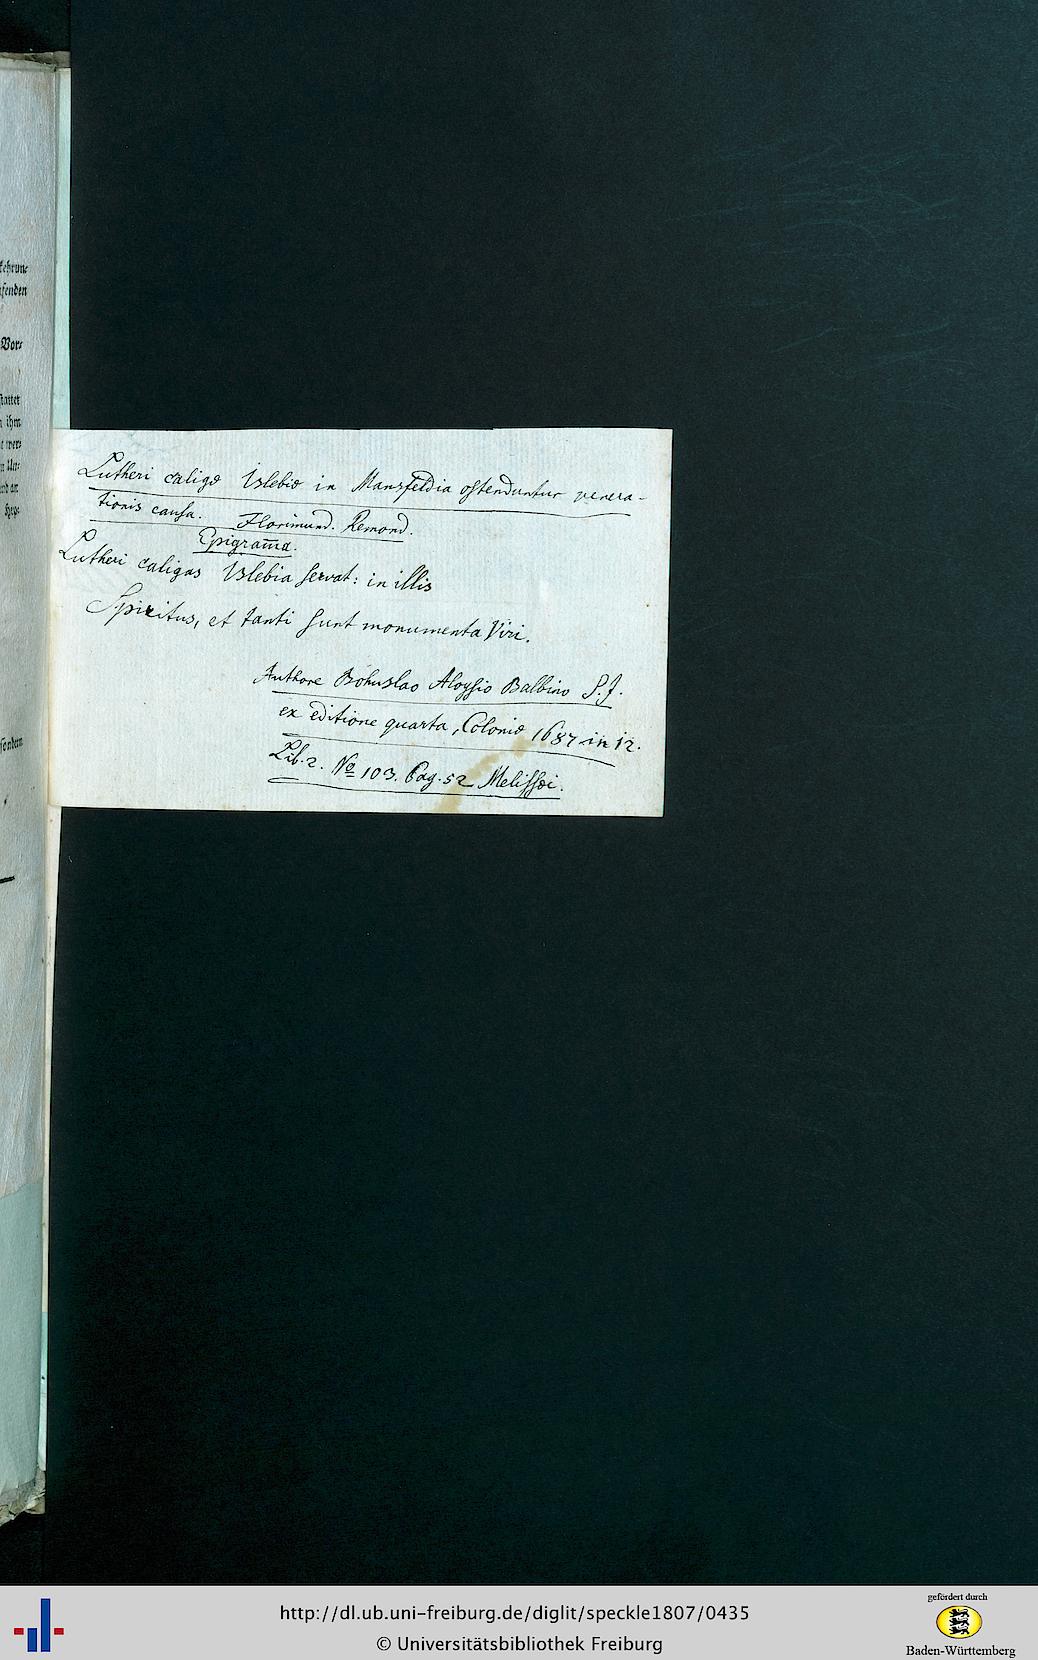 kehrun=
fenden
Vor=
stattet
n ihm
t wer=
n Un=
und an
fordern
Lutheri caligæ Islebiæ in Mansfeldia ostenduntur venera-
tionis causa. Florimund. Remond.
Epigram̅a.
Lutheri caligas Islebia servat: in illis
Spiritus, et tanti sunt monumenta Viri.
Authore Bohuslao Aloysio Balbino S.J.
ex editione quarta, Coloniæ 1687 in 12.
Lib. 2. No 103. Pag. 52 Melissæi.
http://dl.ub.uni-freiburg.de/diglit/speckle1807/0435
© Universitätsbibliothek Freiburg
gefördert durch
Baden-Württemberg